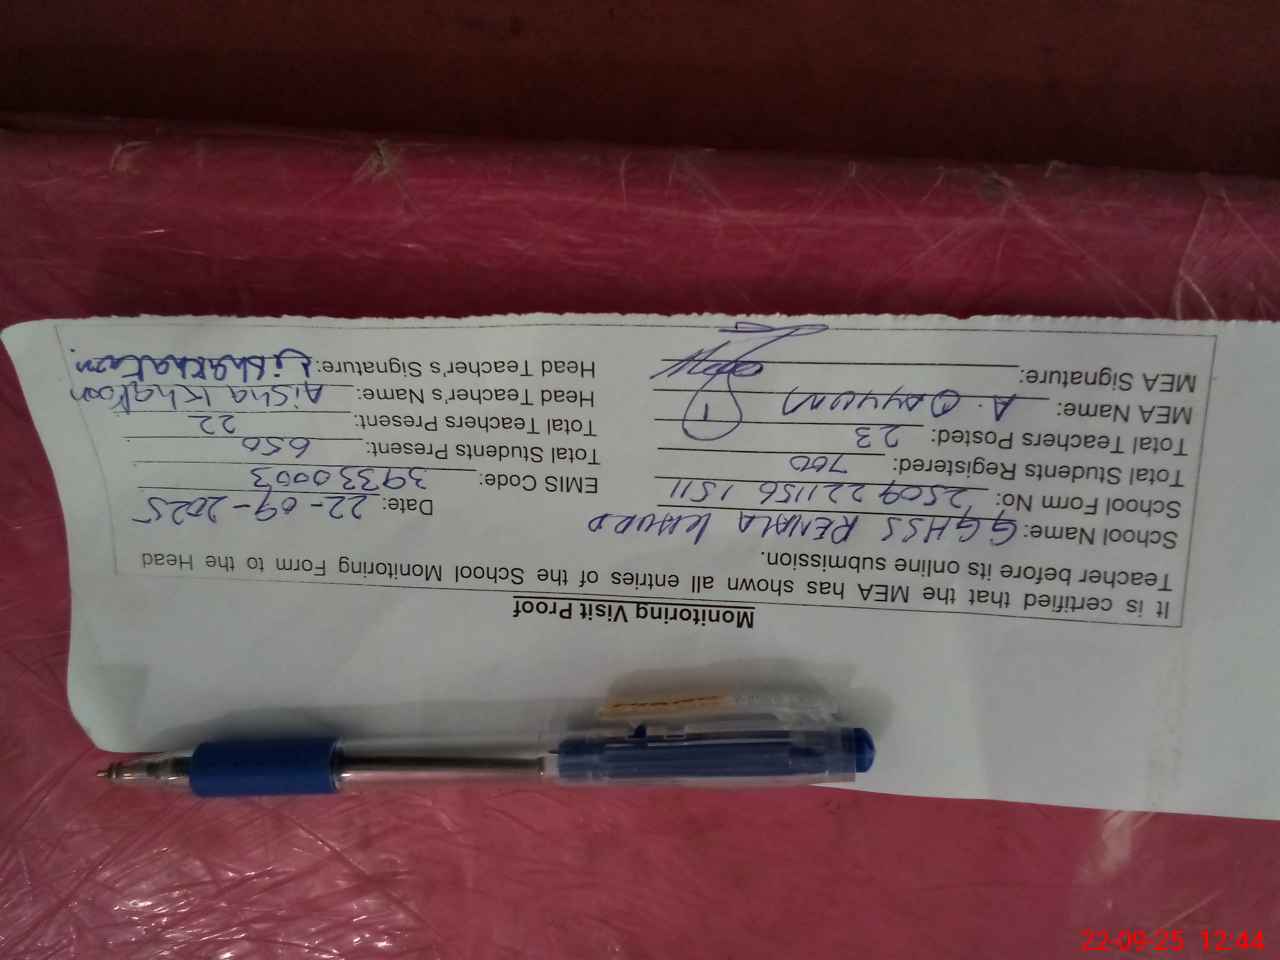 Monitoring Visit Proof
It is certified that the MEA has shown all entries of the School Monitoring Form to the Head
Teacher before its online submission.
School Name: GGHSS RENALA KHURD Date: 22-09-2025
School Form No: 2509221156 1511 EMIS Code: 39330003
Total Students Registered: 700 Total Students Present: 650
Total Teachers Posted: 23 Total Teachers Present: 22
MEA Name: A. Qayyum Head Teacher's Name: Aisha Khatoon
MEA Signature: Head Teacher's Signature: Aisha Khatoon
22-09-25 12:44